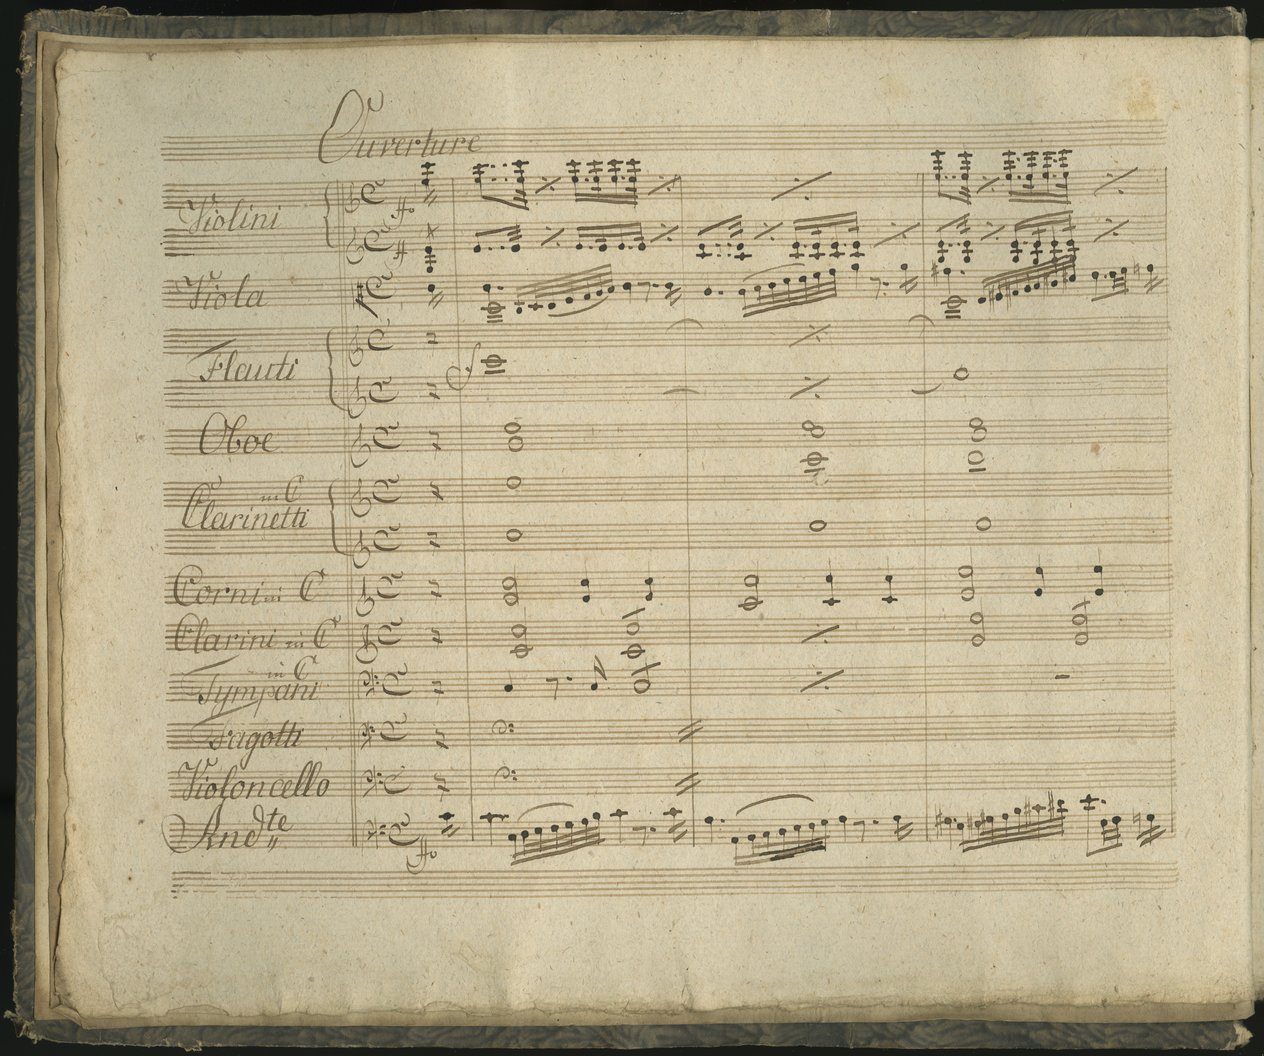 Ouverture
Violini
Viola
Flauti
Oboe
in C
Clarinetti
Corni in C
Clarini in C
in C
Tympani
Fagotti
Violoncello
And:te